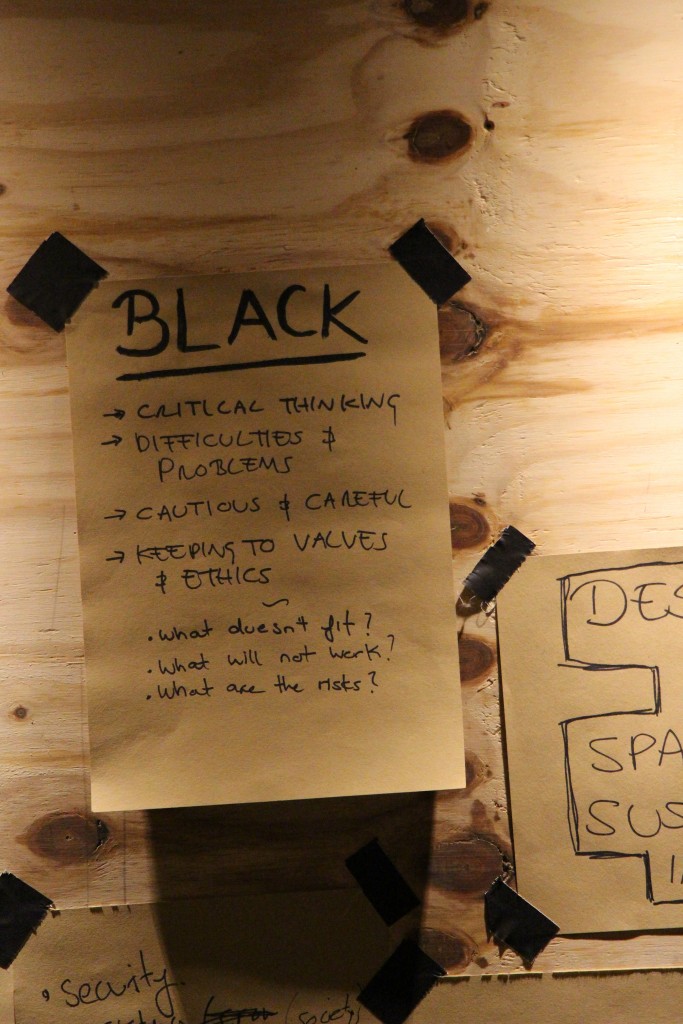 BLACK
→ CRITICAL THINKING
→ DIFFICULTIES &
PROBLEMS
→ CAUTIOUS & CAREFUL
→ KEEPING TO VALUES
& ETHICS
~
. what doesn't fit?
. What will not work?
. What are the risks?
DES
SPA
SUS
• security.
(society